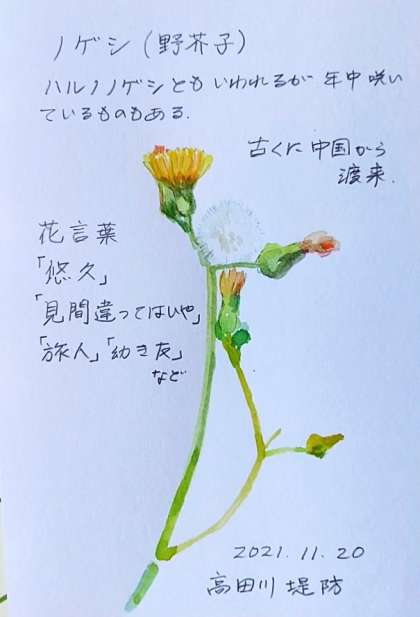 ノゲシ(野芥子)
ハルノノゲシともいわれるが年中咲い
ているものもある.
古くに中国から
渡来.
花言葉
「悠久」
「見間違ってはいや」
「旅人」「幼き友」
など
2021.11.20
高田川堤防